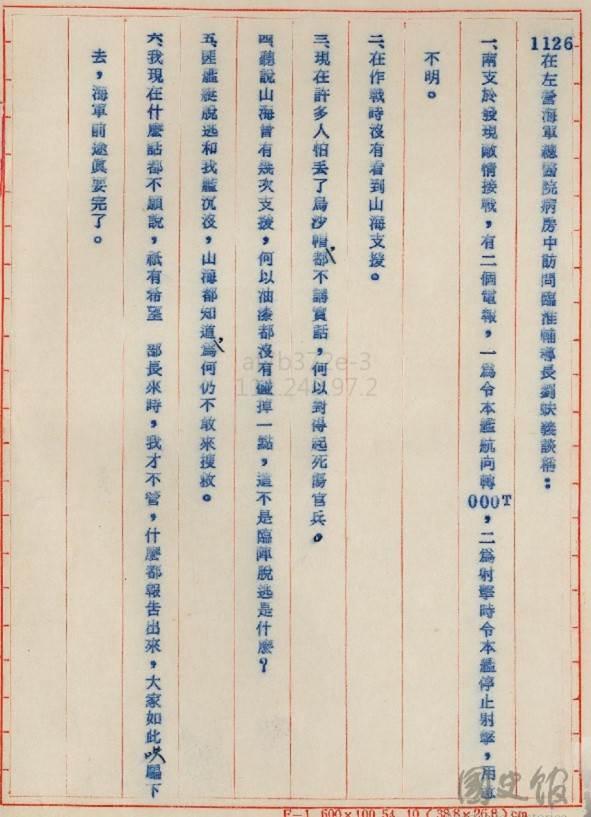 1126在左營海軍總醫院病房中訪問臨淮輔導長劉耿接談稱：
一、南支於發現敵情接戰，有二個電報，一為令本艦航向轉000T，二為射擊時令本艦停止射擊，用意
不明。
二、在作戰時沒有看到山海支援。
三、現在許多人怕丟了烏沙帽，都不講實話，何以對得起死傷官兵。
四、聽說山海曾有幾次支援，何以油漆都沒有碰掉一點，這不是臨陣脫逃是什麼？
五、匪艦艇脫逃和我艦沉沒，山海都知道，為何仍不敢來搜救。
六、我現在什麼話都不願說，祇有希望　部長來時，我才不管，什麼都報告出來，大家如此哄騙下
去，海軍前途真要完了。
a82b372e-3
97.2
國史館
F-1 600×100 54. 10 (38.8×26.8) cm